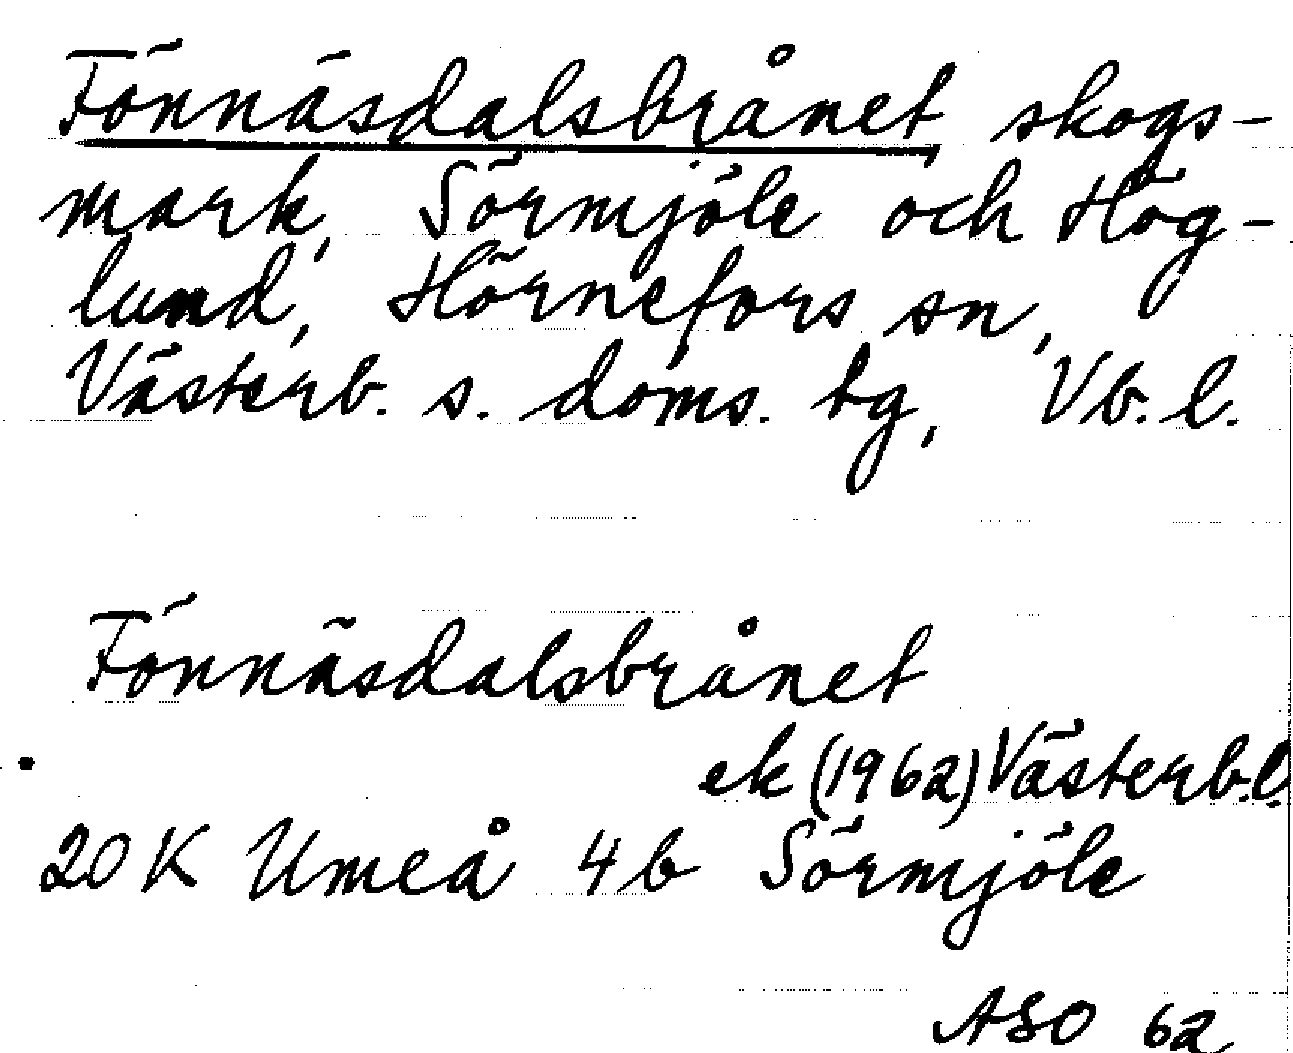 Fönnäsdalsbrånet, skogs-
mark, Sörmjöle och Hög-
lund, Hörnefors sn,
Västerb. s. doms. tg, Vb. l.
Fönnäsdalsbrånet
ek (1962) Västerb. l.
20 K Umeå 4 b Sörmjöle
ASO 62